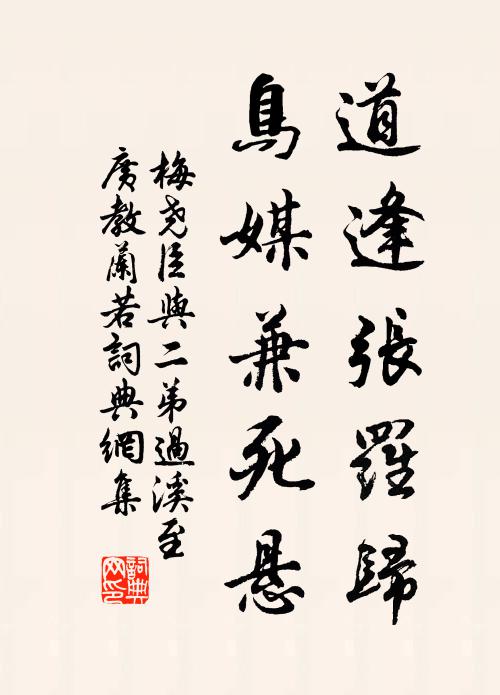 道逢張羅歸
鳥媒兼死懸
梅堯臣與二弟過溪至
廣教蘭若詞典網集
詞典
网印